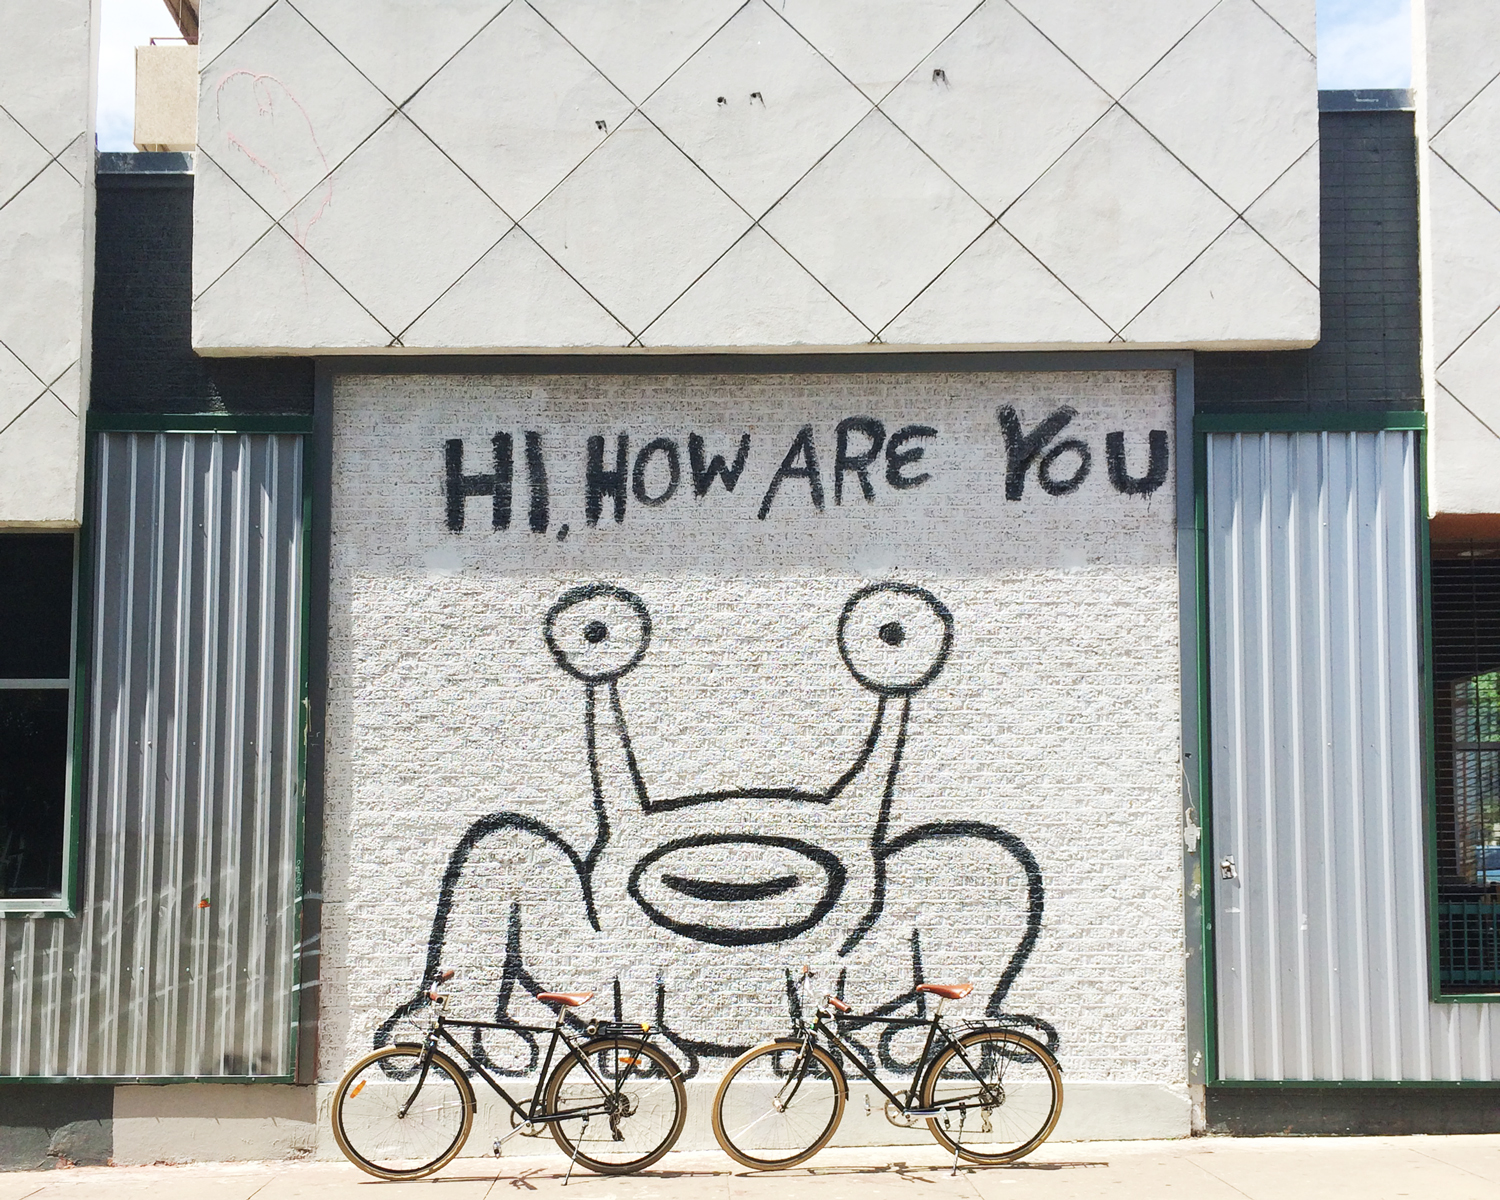 HI, HOW ARE YOU